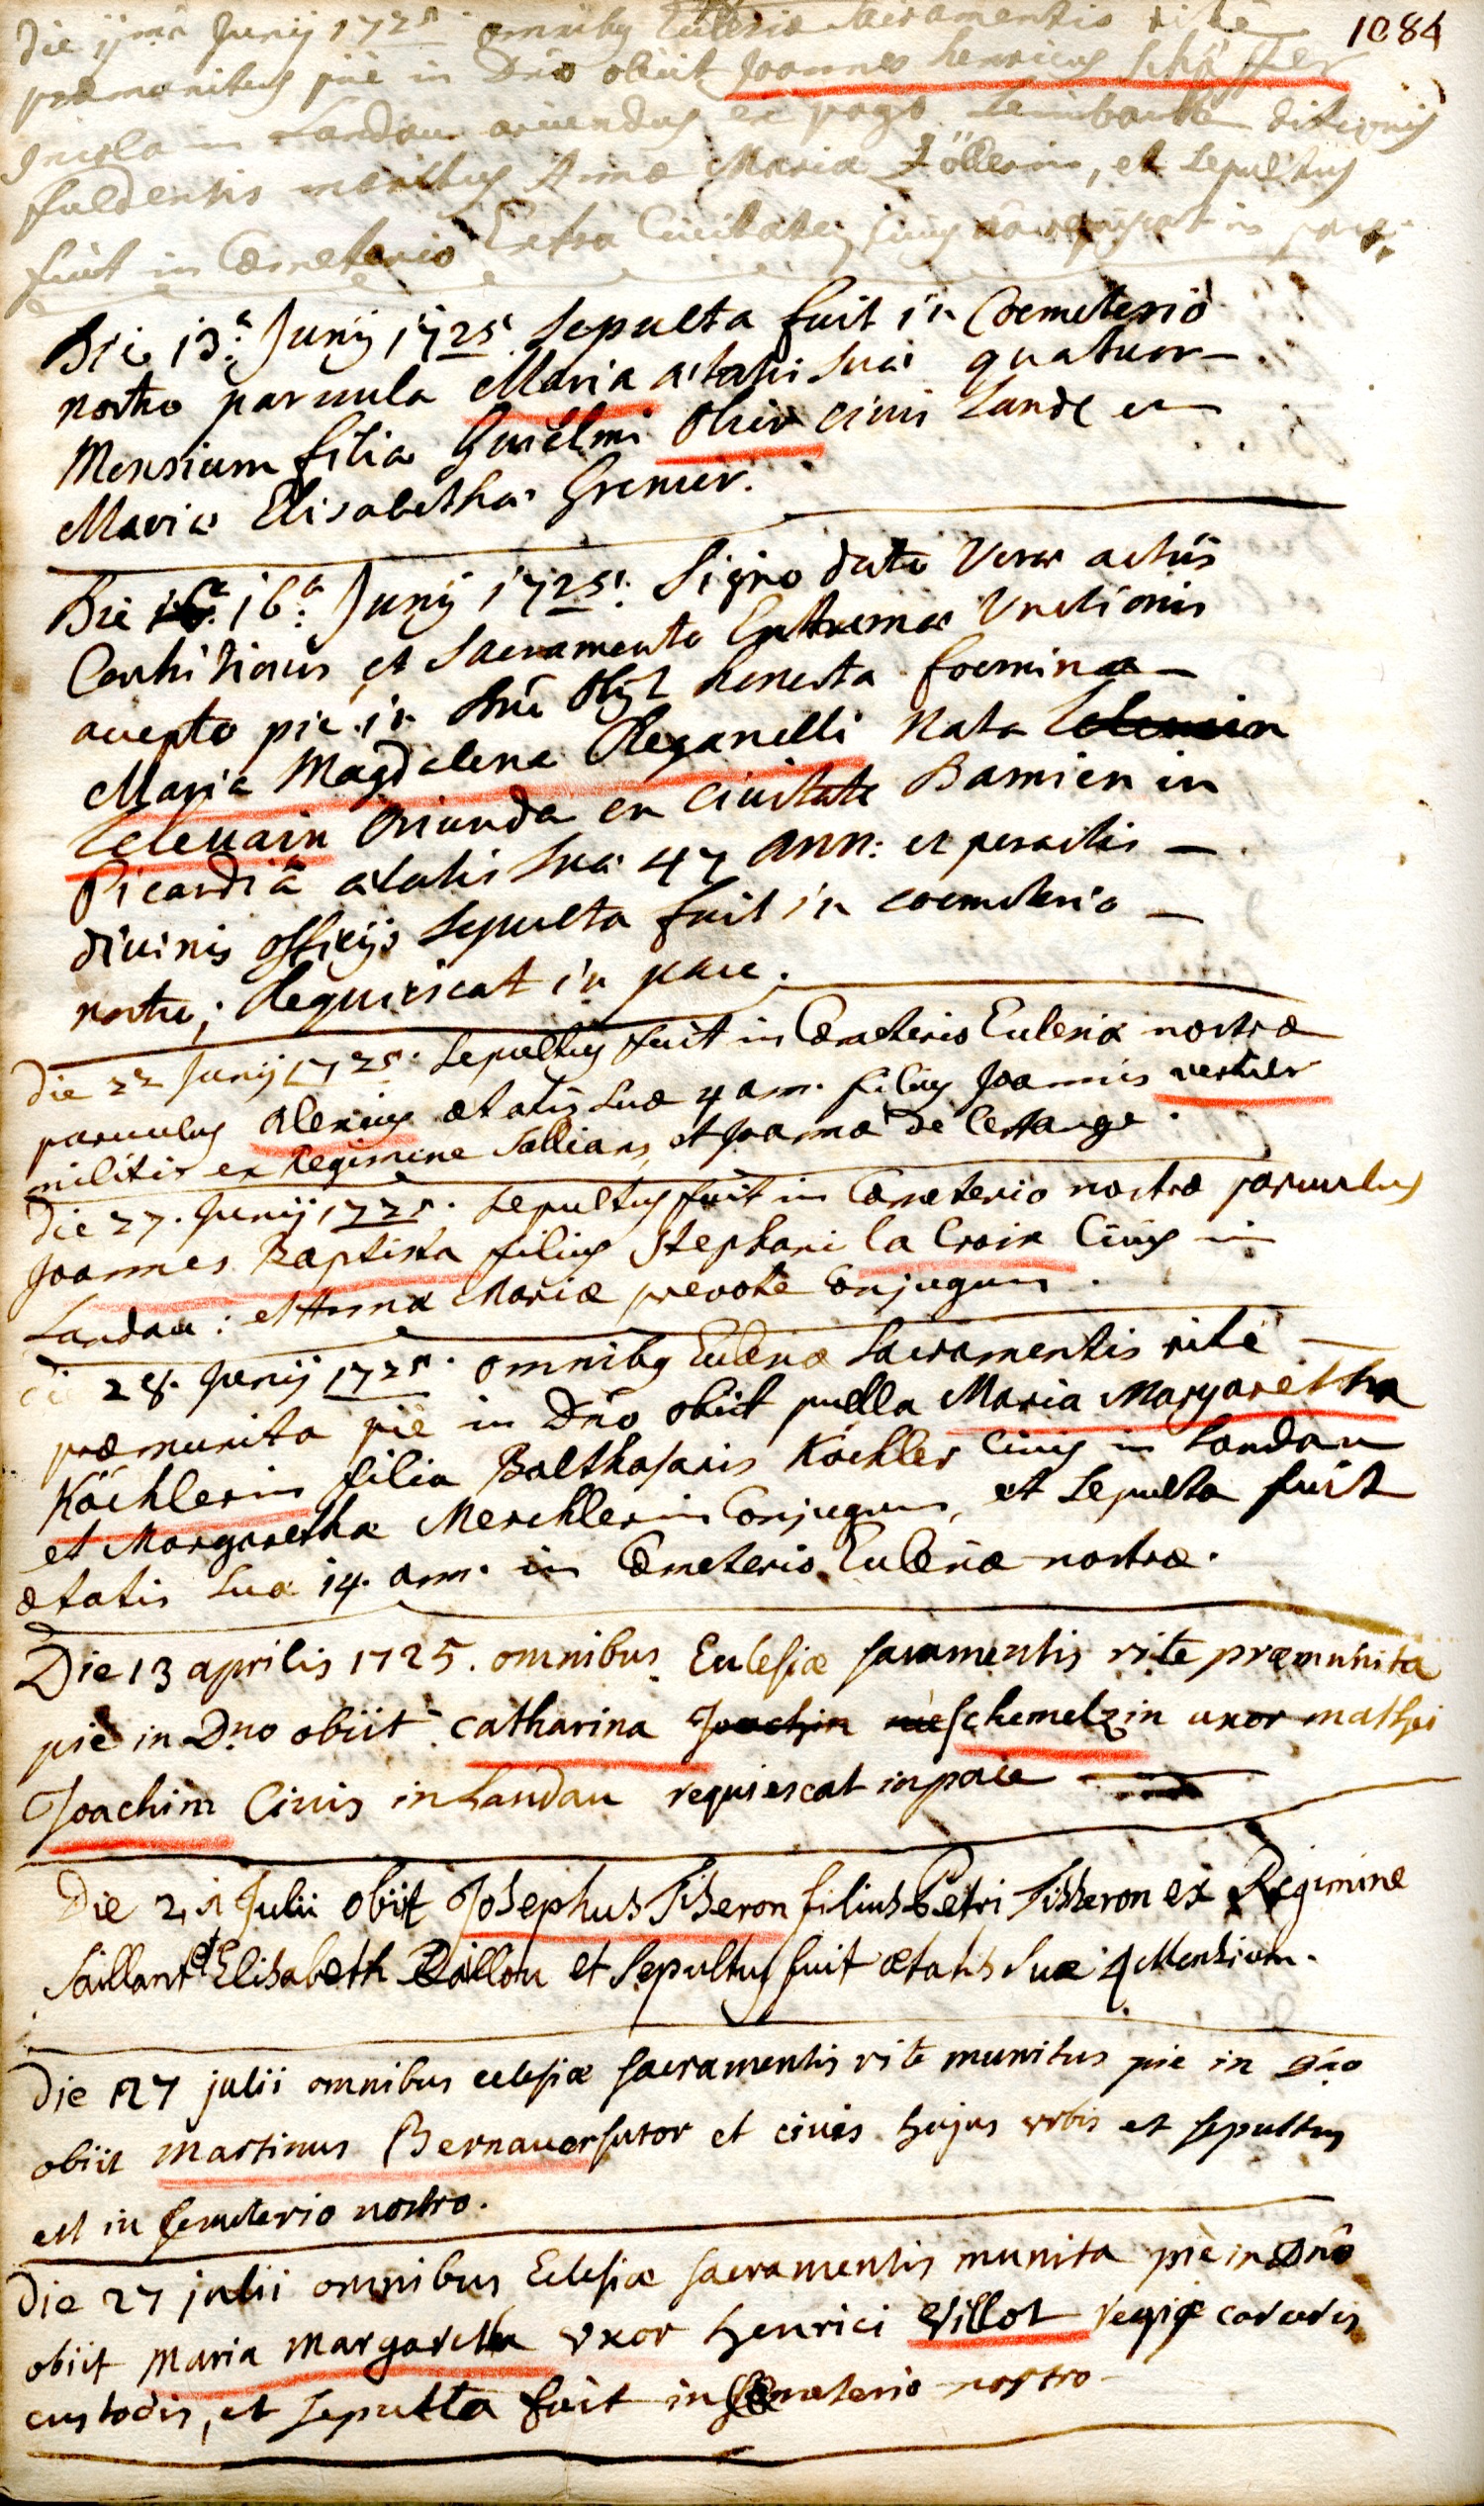 1084
die 11ma Junij 1725 omnibus Ecclesiæ Sacramentis rite
præmunitus piè in Dno obiit Joannes henricus Schäffer
incola in Landau oriundus ex pago Leimbach ditionis
fuldensis maritus Annæ Mariæ Zöllerin, et Sepultus
fuit in Cæmeterio Extra Civitatem, requiescat in pace.
Die 13a Junij 1725 Sepulta fuit in Coemeterio
nostro parvula Maria ætatis suæ quatuor
Mensium filia Guilelmi Olier civis Landæ et
Mariæ Elisabetha Grenier.
Die 16a Junij 1725. Signo dato veræ actûs
Contritionis et Sacramento Extremæ Unctionis
accepto pie in Dno obijt honesta foemina
Maria Magdalena Reganelli Nata
Lelevain Oriunda ex Civitate Bamien in
Picardiâ ætatis suæ 47 ann: et peractis
divinis officijs Sepulta fuit in coemeterio
nostro; Requiescat in pace.
die 22 Junij 1725. Sepultus fuit in Cæmeterio Ecclesiæ nostræ
parvulus Alexius ætatis suæ 4 ann. filius Joannis vestier
militis ex Regimine Sallians, et Joannæ de lestange.
Die 27. Junij 1725. Sepultus fuit in Cæmeterio nostro parvulus
Joannes Baptista filius Stephani la Croix Civis in
Landau: et Annæ Mariæ prevote Conjugum.
die 28. Junij 1725. omnibus Ecclesiæ Sacramentis rite
præmunita piè in Dno obiit puella Maria Margaretha
Köchlerin filia Balthasaris Köchler Civis in Landau
et Margarethæ Merchlerin Conjugum, et Sepulta fuit
ætatis suæ 14. ann. in Cæmeterio Ecclesiæ nostræ.
Die 13 aprilis 1725. omnibus Eclesiæ sacramentis rite præmunita
piè in Dno obiit catharina Joachin née schemelzin uxor mathei
Joachim Civis in Landau requiescat in pace
Die 21 Julii obiit Josephus Tisseron filius Petri Tisseron ex Regimine
Saillant et Elisabeth Baillou et Sepultus fuit ætatis suæ 4 Mensium.
Die 27 julii omnibus eclesiæ sacramentis rite munitus pie in Dno
obiit Martinus Bernauer sutor et civis hujus urbis et sepultus
est in semeterio nostro.
Die 27 julii omnibus Eclesiæ sacramentis munita piè in Dno
obiit Maria Margaretha uxor henrici Villot regii carceris
custodis, et Sepulta fuit in Semeterio nostro